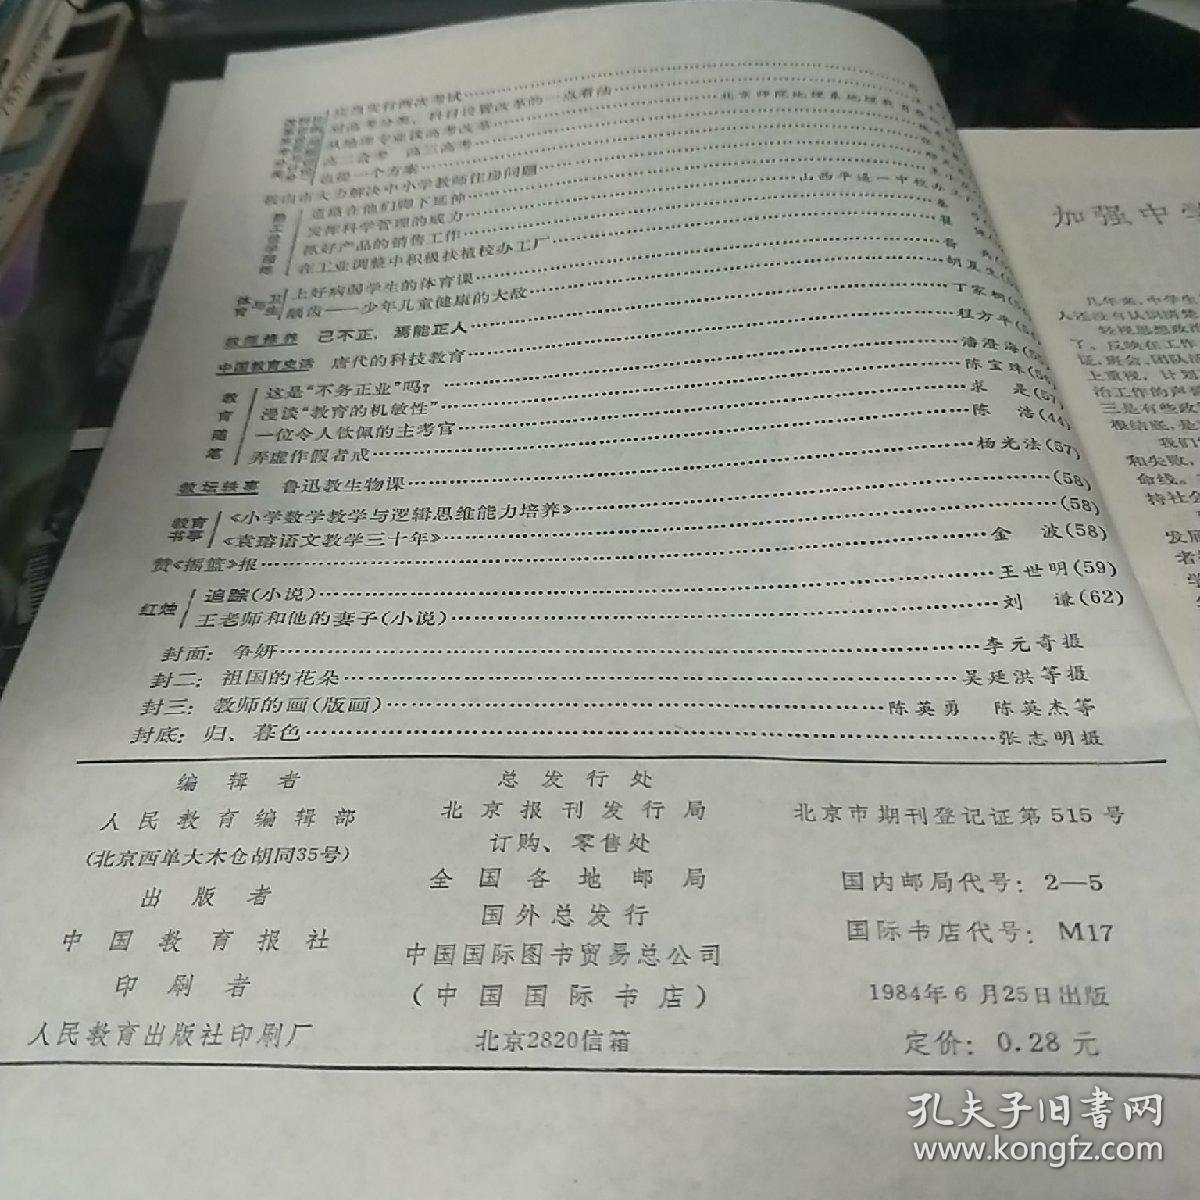 应当实行两次考试
对高考分类、科目设置改革的一点看法
从地理专业谈高考改革 北京师院地理系地理教育
高二会考 高三高考
也提一个方案
鞍山市大力解决中小学教师住房问题
勤工俭学园地
道路在他们脚下延伸 山西平遥一中校办
发挥科学管理的威力
抓好产品的销售工作
在工业调整中积极扶植校办工厂
体育与卫生
上好病弱学生的体育课
龋齿——少年儿童健康的大敌 胡夏生
教师修养 己不正，焉能正人 丁家桐
中国教育史话 唐代的科技教育 程方平
教育随笔
这是“不务正业”吗？ 潘澄海
漫谈“教育的机敏性” 陈宝珠
一位令人钦佩的主考官 求 是(57)
弄虚作假者戒 陈 浩(44)
教坛轶事 鲁迅教生物课 杨光法(57)
教育书亭
《小学数学教学与逻辑思维能力培养》 (58)
《袁瑢语文教学三十年》 (58)
赞《摇篮》报 金 波(58)
红烛
追踪(小说) 王世明(59)
王老师和他的妻子(小说) 刘 谦(62)
封面：争妍 李元奇摄
封二：祖国的花朵 吴延洪等摄
封三：教师的画(版画) 陈英勇 陈英杰等
封底：归、暮色 张志明摄
编辑者
人民教育编辑部
(北京西单大木仓胡同35号)
出版者
中国教育报社
印刷者
人民教育出版社印刷厂
总发行处
北京报刊发行局
订购、零售处
全国各地邮局
国外总发行
中国国际图书贸易总公司
(中国国际书店)
北京2820信箱
北京市期刊登记证第515号
国内邮局代号：2—5
国际书店代号：M17
1984年6月25日出版
定价：0.28元
加强中学
几年来，中学生
人还没有认识清楚
轻视思想政治
了。反映在工作
证，班会、团队活
上重视，计划
治工作的声势
三是有些政
很结底，是
我们
和失败，
命线。
持社会
发展
者
学
孔夫子旧书网
www.kongfz.com